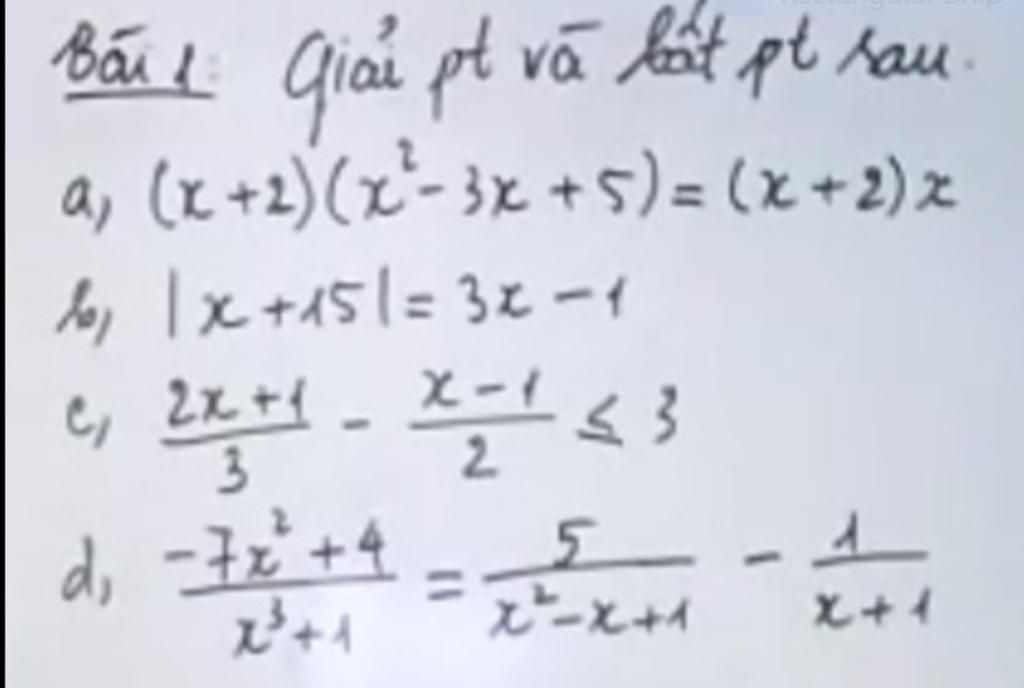 Bài 1: Giải pt và bất pt sau.
a, (x+2)(x²-3x+5)=(x+2)x
b, |x+15|=3x-1
c, (2x+1)/3 - (x-1)/2 ≤ 3
d, (-7x²+4)/(x³+1) = 5/(x²-x+1) - 1/(x+1)